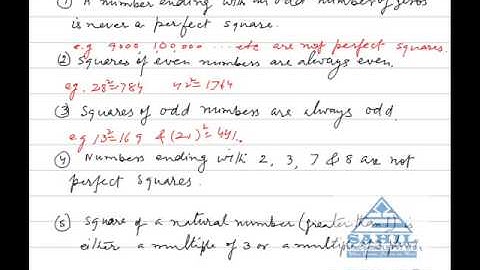 ① A number ending with an odd number of zeros
is never a perfect square.
e.g 9000, 100,000 ... etc are not perfect squares.
② Squares of even numbers are always even.
eg. 28²=784 42²=1764
③ Squares of odd numbers are always odd.
e.g 13²=169 & (21)²=441.
④ Numbers ending with 2, 3, 7 & 8 are not
perfect squares.
⑤ Square of a natural number (greater than 1) is
either a multiple of 3 or a multiple of 3
SAHIL